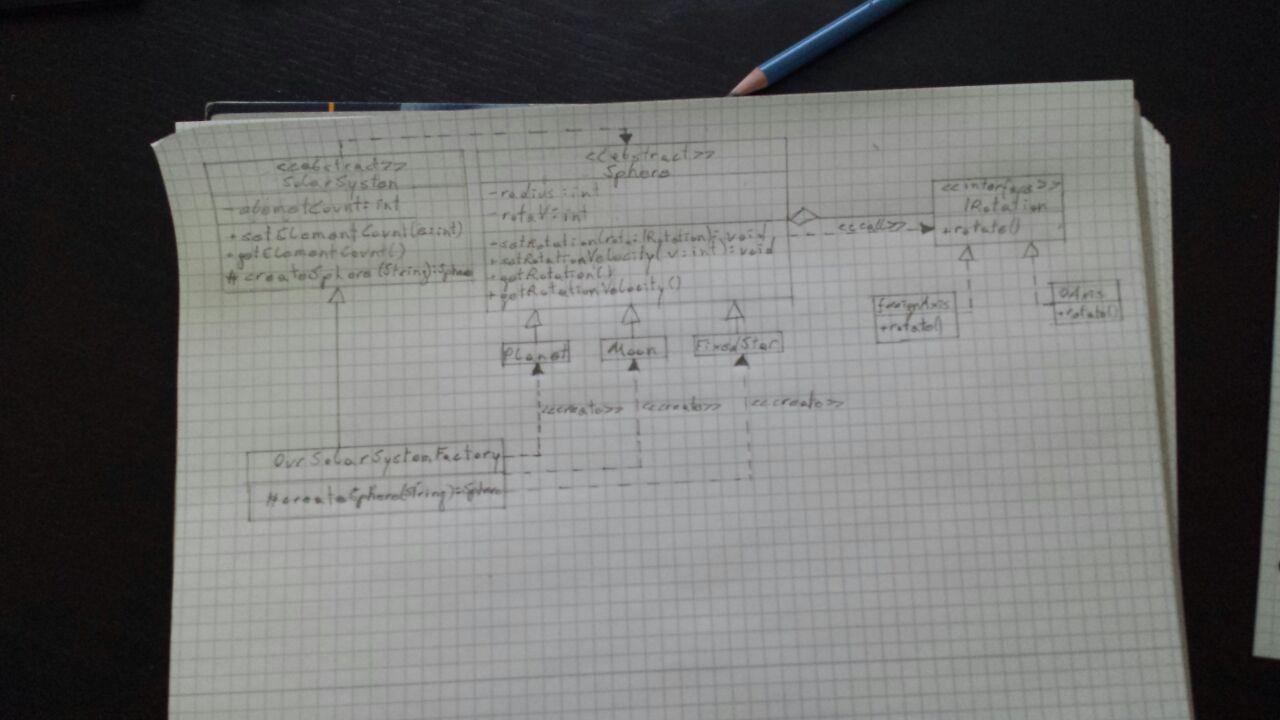 <<abstract>>
SolarSystem
- elementCount: int
+ setElementCount(e:int)
+ getElementCount()
# createSphere(String):Sphere
<<abstract>>
Sphere
- radius: int
- rotaV: int
+ setRotation(rota:IRotation): void
+ setRotationVelocity(v:int): void
+ getRotation()
+ getRotationVelocity()
<<call>>
<<interface>>
IRotation
+ rotate()
+ rotate()
Axis
+ rotate()
Planet
Moon
FixedStar
<<create>>
<<create>>
<<create>>
OurSolarSystemFactory
# createSphere(String):Sphere